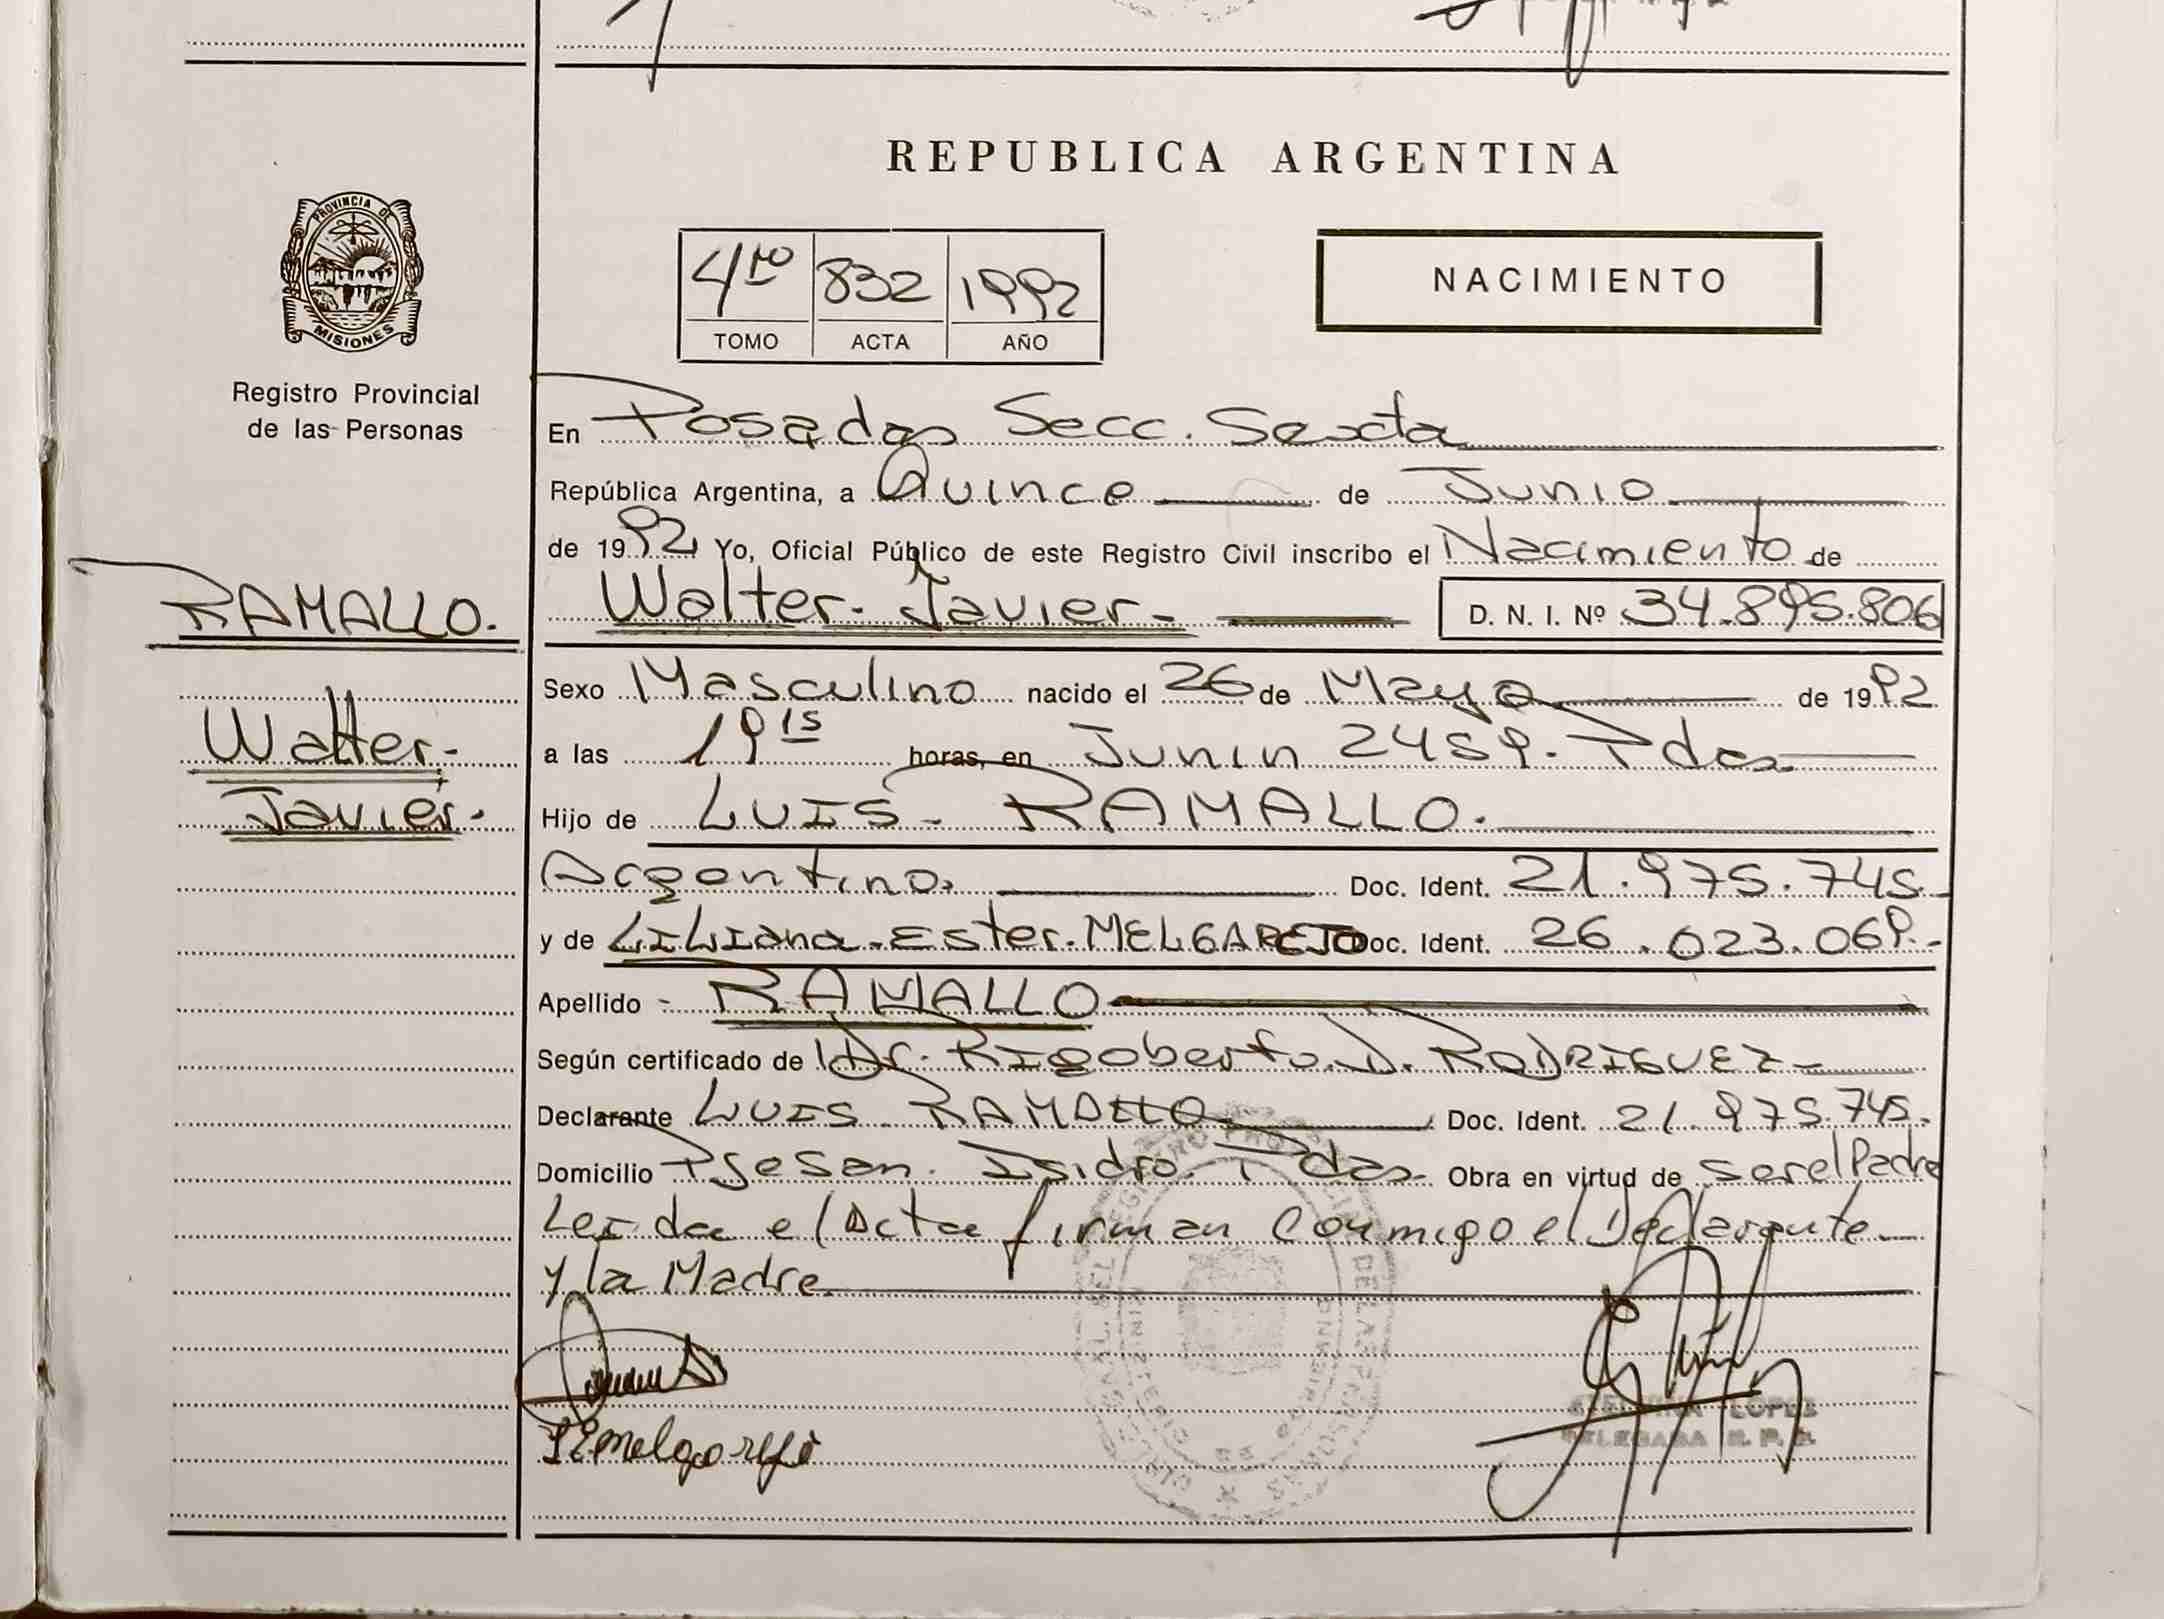 REPUBLICA ARGENTINA
PROVINCIA DE
MISIONES
Registro Provincial
de las Personas
4to 832 1992
TOMO ACTA AÑO
NACIMIENTO
En Posadas Secc. Sexta
República Argentina, a Quince de Junio
de 1992 Yo, Oficial Público de este Registro Civil inscribo el Nacimiento de
RAMALLO.
Walter
Javier
Walter Javier D. N. I. Nº 34.895.806
Sexo Masculino nacido el 26 de Mayo de 1992
a las 19 15 horas, en Junin 2459. Pdas
Hijo de LUIS RAMALLO.
Argentino Doc. Ident. 21.975.745
y de LiLiana Ester MELGAREJO Doc. Ident. 26.023.069
Apellido RAMALLO
Según certificado de Dr. Rigoberto D. RODRIGUEZ
Declarante LUIS RAMALLO Doc. Ident. 21.975.745
Domicilio Pje San Isidro Pdas Obra en virtud de ser el Padre
Leida el Acta firman conmigo el Declarante
y la Madre
LOPES
DELEGADA R. P. P.